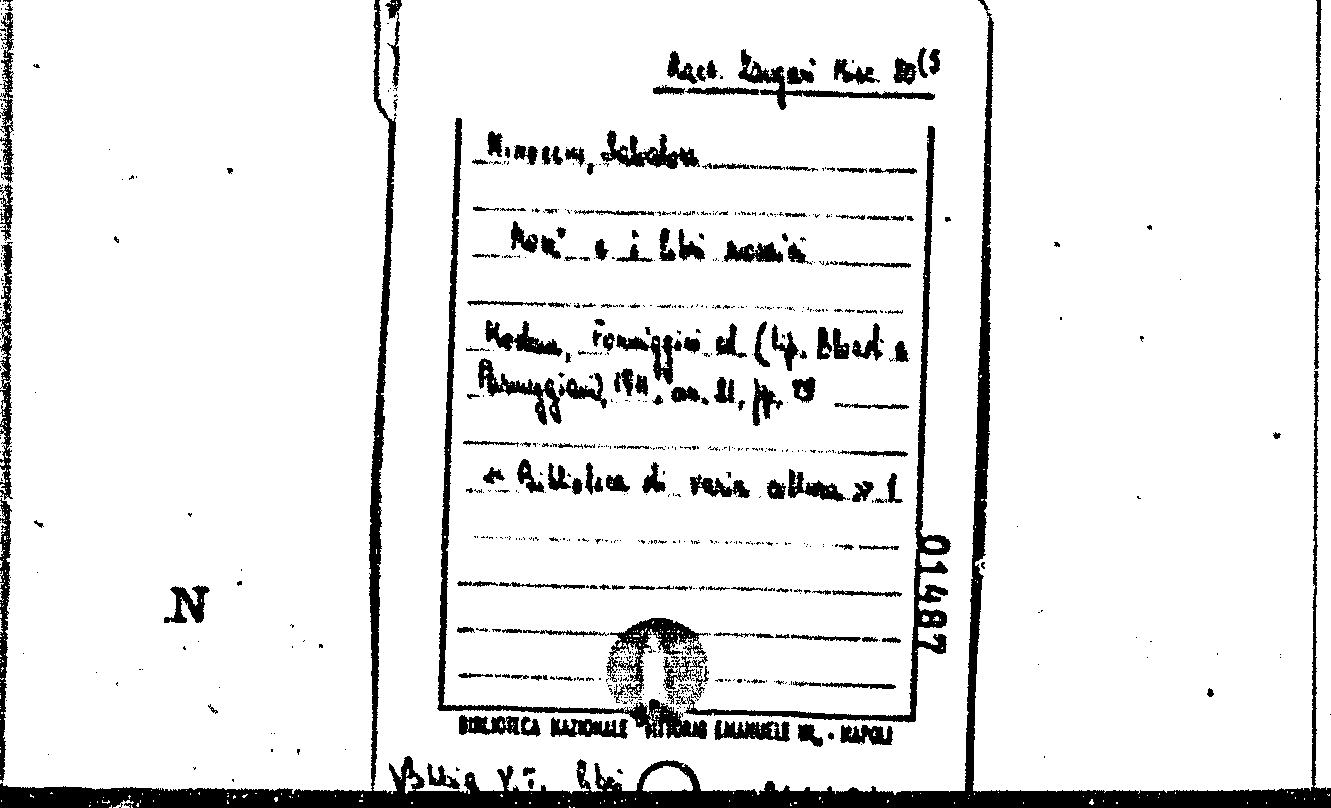 Racc. Zangari Misc. B (5
Minocchi, Salvatore
Mosè e i libri mosaici
Modena, Formiggini ed. (tip. Blasi e
Parmeggiani), 1911, pp. 29
« Biblioteca di varia coltura » 1
01487
N
BIBLIOTECA NAZIONALE VITTORIO EMANUELE III - NAPOLI
Bibbia V.T. Libri